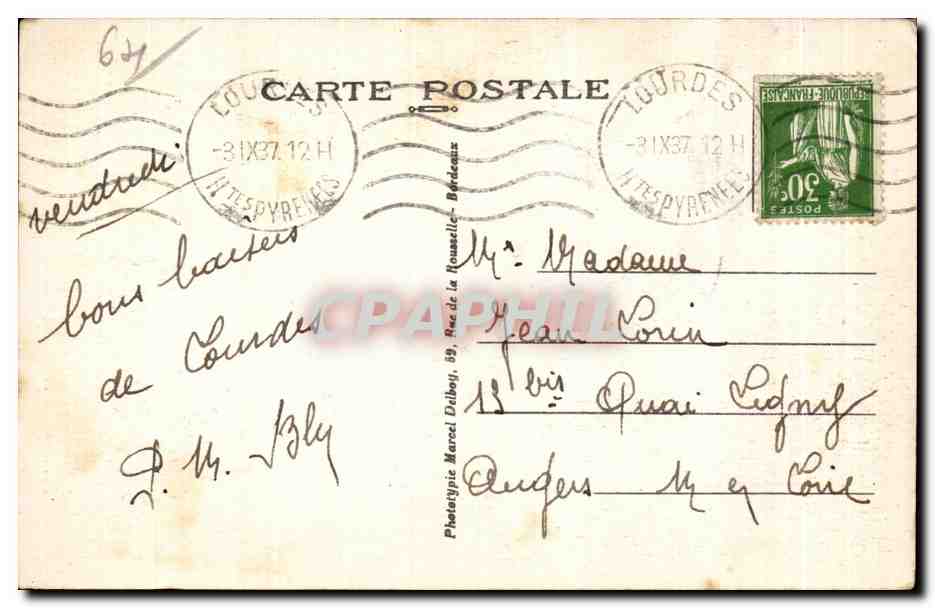 64
CARTE POSTALE
LOURDES
-3 IX 37 12 H
HTES PYRENEES
LOURDES
-3 IX 37 12 H
HTES PYRENEES
RÉPUBLIQUE-FRANÇAISE
POSTES
30c
vendredi
bons baisers
de Lourdes
P. M. Bly
Phototypie Marcel Delboy, 69, Rue de la Rousselle - Bordeaux
Mr Madame
Jean Lorin
13 bis Quai Ligny
Angers M et Loire
CPAPHIL